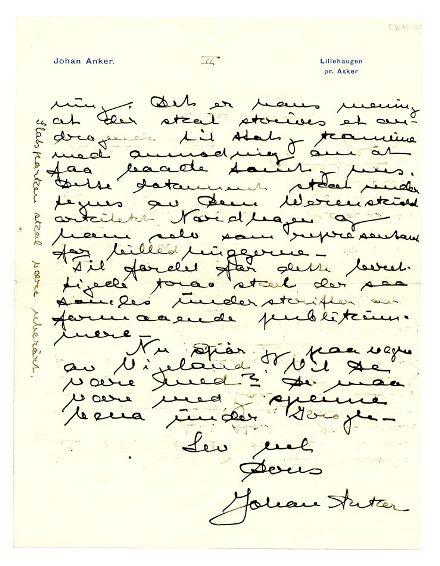 Johan Anker.
III
Lillehaugen
pr. Asker
ning. Det er hans mening
at der skal skrives et an-
til Stat
med anmodning om at
faa baade
Dette dokument skal under
tegnes av Dem Werenskiold
arkitekt Nordhagen og
ham selv som representant
for billedhuggerne –
Til fordel for dette beret-
tigede skal der saa
samles underskrifter av
formaaende publikum-
mere –
Nu spør jeg paa vegne
av Vigeland Vil De
være med? De maa
være med
bena under
Lev vel
Deres
Johan Anker
Slotsparken skal være uberørt.